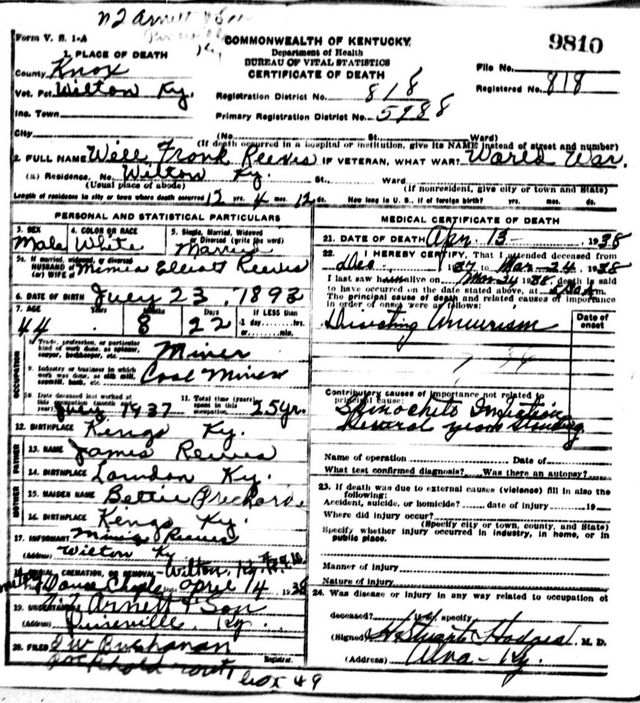 Form V. S. 1-A
COMMONWEALTH OF KENTUCKY
Department of Health
BUREAU OF VITAL STATISTICS
CERTIFICATE OF DEATH
9810
File No.
Registered No. 818
1. PLACE OF DEATH
County Knox
Vot. Pct. Wilton Ky.
Inc. Town
City
Registration District No. 818
Primary Registration District No. 5988
(No. St. Ward)
(If death occurred in a hospital or institution, give its NAME instead of street and number)
2. FULL NAME Will Frank Reeves IF VETERAN, WHAT WAR? World War.
(a) Residence, No. Wilton Ky. St., Ward
(Usual place of abode) (If nonresident, give city or town and State)
Length of residence in city or town where death occurred 12 yrs. 4 mos. 12 ds. How long in U. S., if of foreign birth? yrs. mos. ds.
PERSONAL AND STATISTICAL PARTICULARS
3. SEX 4. COLOR OR RACE 5. Single, Married, Widowed or Divorced (write the word)
Male White Married
5a. If married, widowed, or divorced
HUSBAND of
(or) WIFE of Elliott Reeves
6. DATE OF BIRTH July 23, 1893
7. AGE Years Months Days If LESS than
44 8 22 1 day, hrs. or min.
OCCUPATION
8. Trade, profession, or particular kind of work done, as spinner, sawyer, bookkeeper, etc. Miner
9. Industry or business in which work was done, as silk mill, sawmill, bank, etc. Coal Miner
10. Date deceased last worked at this occupation (month and year) July 1937
11. Total time (years) spent in this occupation 25 yr.
12. BIRTHPLACE Ky.
FATHER
13. NAME James Reeves
14. BIRTHPLACE Ky.
MOTHER
15. MAIDEN NAME Bettie
16. BIRTHPLACE Ky.
17. INFORMANT Reeves
(Address) Wilton Ky
18. BURIAL, CREMATION, OR REMOVAL Wilton, Ky.
April 14 1938
19. UNDERTAKER Arnett & Son
(Address) Pineville, Ky.
20. FILED Buchanan
Registrar.
route box 49
MEDICAL CERTIFICATE OF DEATH
21. DATE OF DEATH Apr. 13 1938
22. I HEREBY CERTIFY, That I attended deceased from
Dec 1937 to Mar-24, 1938
I last saw him alive on Mar 24 1938, death is said
to have occurred on the date stated above, at m.
The principal cause of death and related causes of importance
in order of onset were as follows:
Date of onset
Aneurism
Contributory causes of importance not related to
principal cause:
Several years standing
Name of operation Date of
What test confirmed diagnosis? Was there an autopsy?
23. If death was due to external causes (violence) fill in also the following:
Accident, suicide, or homicide? date of injury 19
Where did injury occur?
(Specify city or town, county, and State)
Specify whether injury occurred in industry, in home, or in public place.
Manner of injury
Nature of injury
24. Was disease or injury in any way related to occupation of
deceased? If so, specify
(Signed) M. D.
(Address) Alva - Ky.